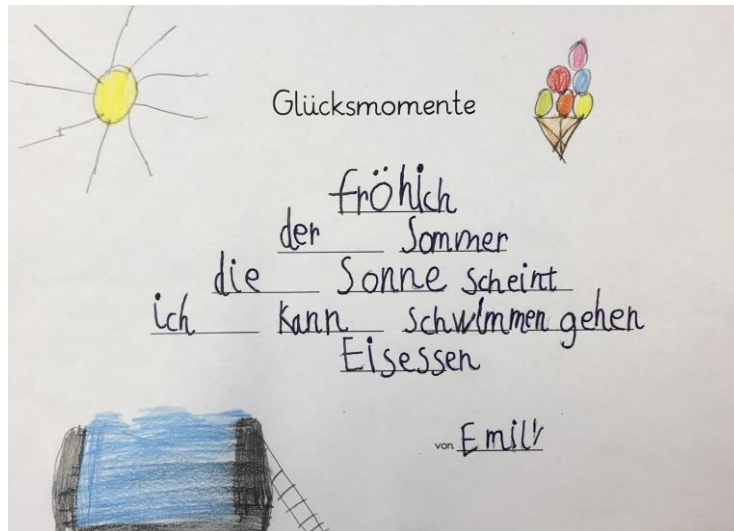 Glücksmomente
fröhlich
der Sommer
die Sonne scheint
ich kann schwimmen gehen
Eisessen
von Emily